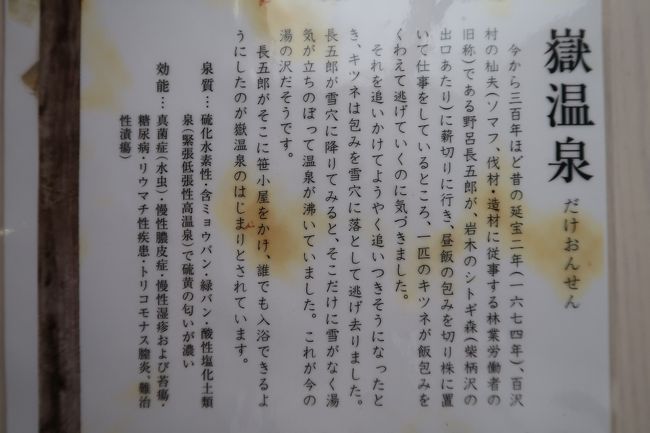 嶽温泉 だけおんせん
今から三百年ほど昔の延宝二年(一六七四年)、百沢
村の杣夫(ソマフ、伐材・造材に従事する林業労働者の
旧称)である野呂長五郎が、岩木のシトギ森(柴柄沢の
出口あたり)に薪切りに行き、昼飯の包みを切り株に置
いて仕事をしているところ、一匹のキツネが飯包みを
くわえて逃げていくのに気づきました。
それを追いかけてようやく追いつきそうになったと
き、キツネは包みを雪穴に落として逃げ去りました。
長五郎が雪穴に降りてみると、そこだけに雪がなく湯
気が立ちのぼって温泉が沸いていました。これが今の
湯の沢だそうです。
長五郎がそこに笹小屋をかけ、誰でも入浴できるよ
うにしたのが嶽温泉のはじまりとされています。
泉質…硫化水素性・含ミョウバン・緑バン・酸性塩化土類
泉(緊張低張性高温泉)で硫黄の匂いが濃い
効能…真菌症(水虫)・慢性膿皮症・慢性湿疹および苔癬・
糖尿病・リウマチ性疾患・トリコモナス膣炎、難治
性潰瘍)